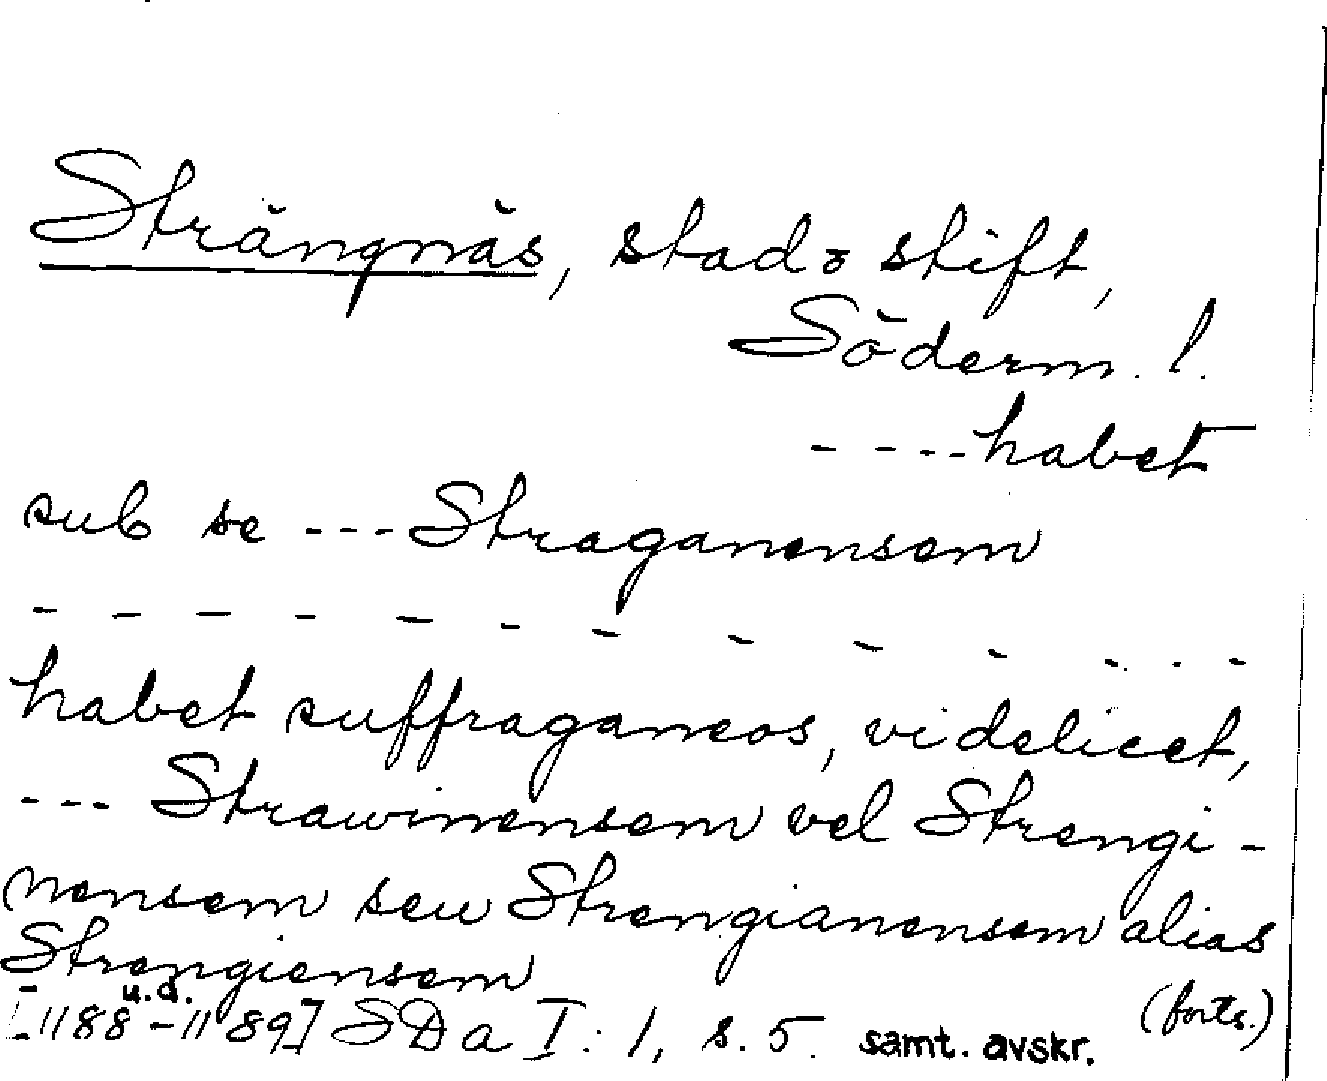 Strängnäs, stad o stift,
Söderm. l.
- - - - habet
sub se - - - Straganensem
- - - - - - - - - - - - -
habet suffraganeos, videlicet,
- - - Strawinensem vel Strengi-
nensem seu Strengianensem alias
Strengiensem
u.d. (forts.)
[1188-1189] SDa I: 1, s. 5. samt. avskr.